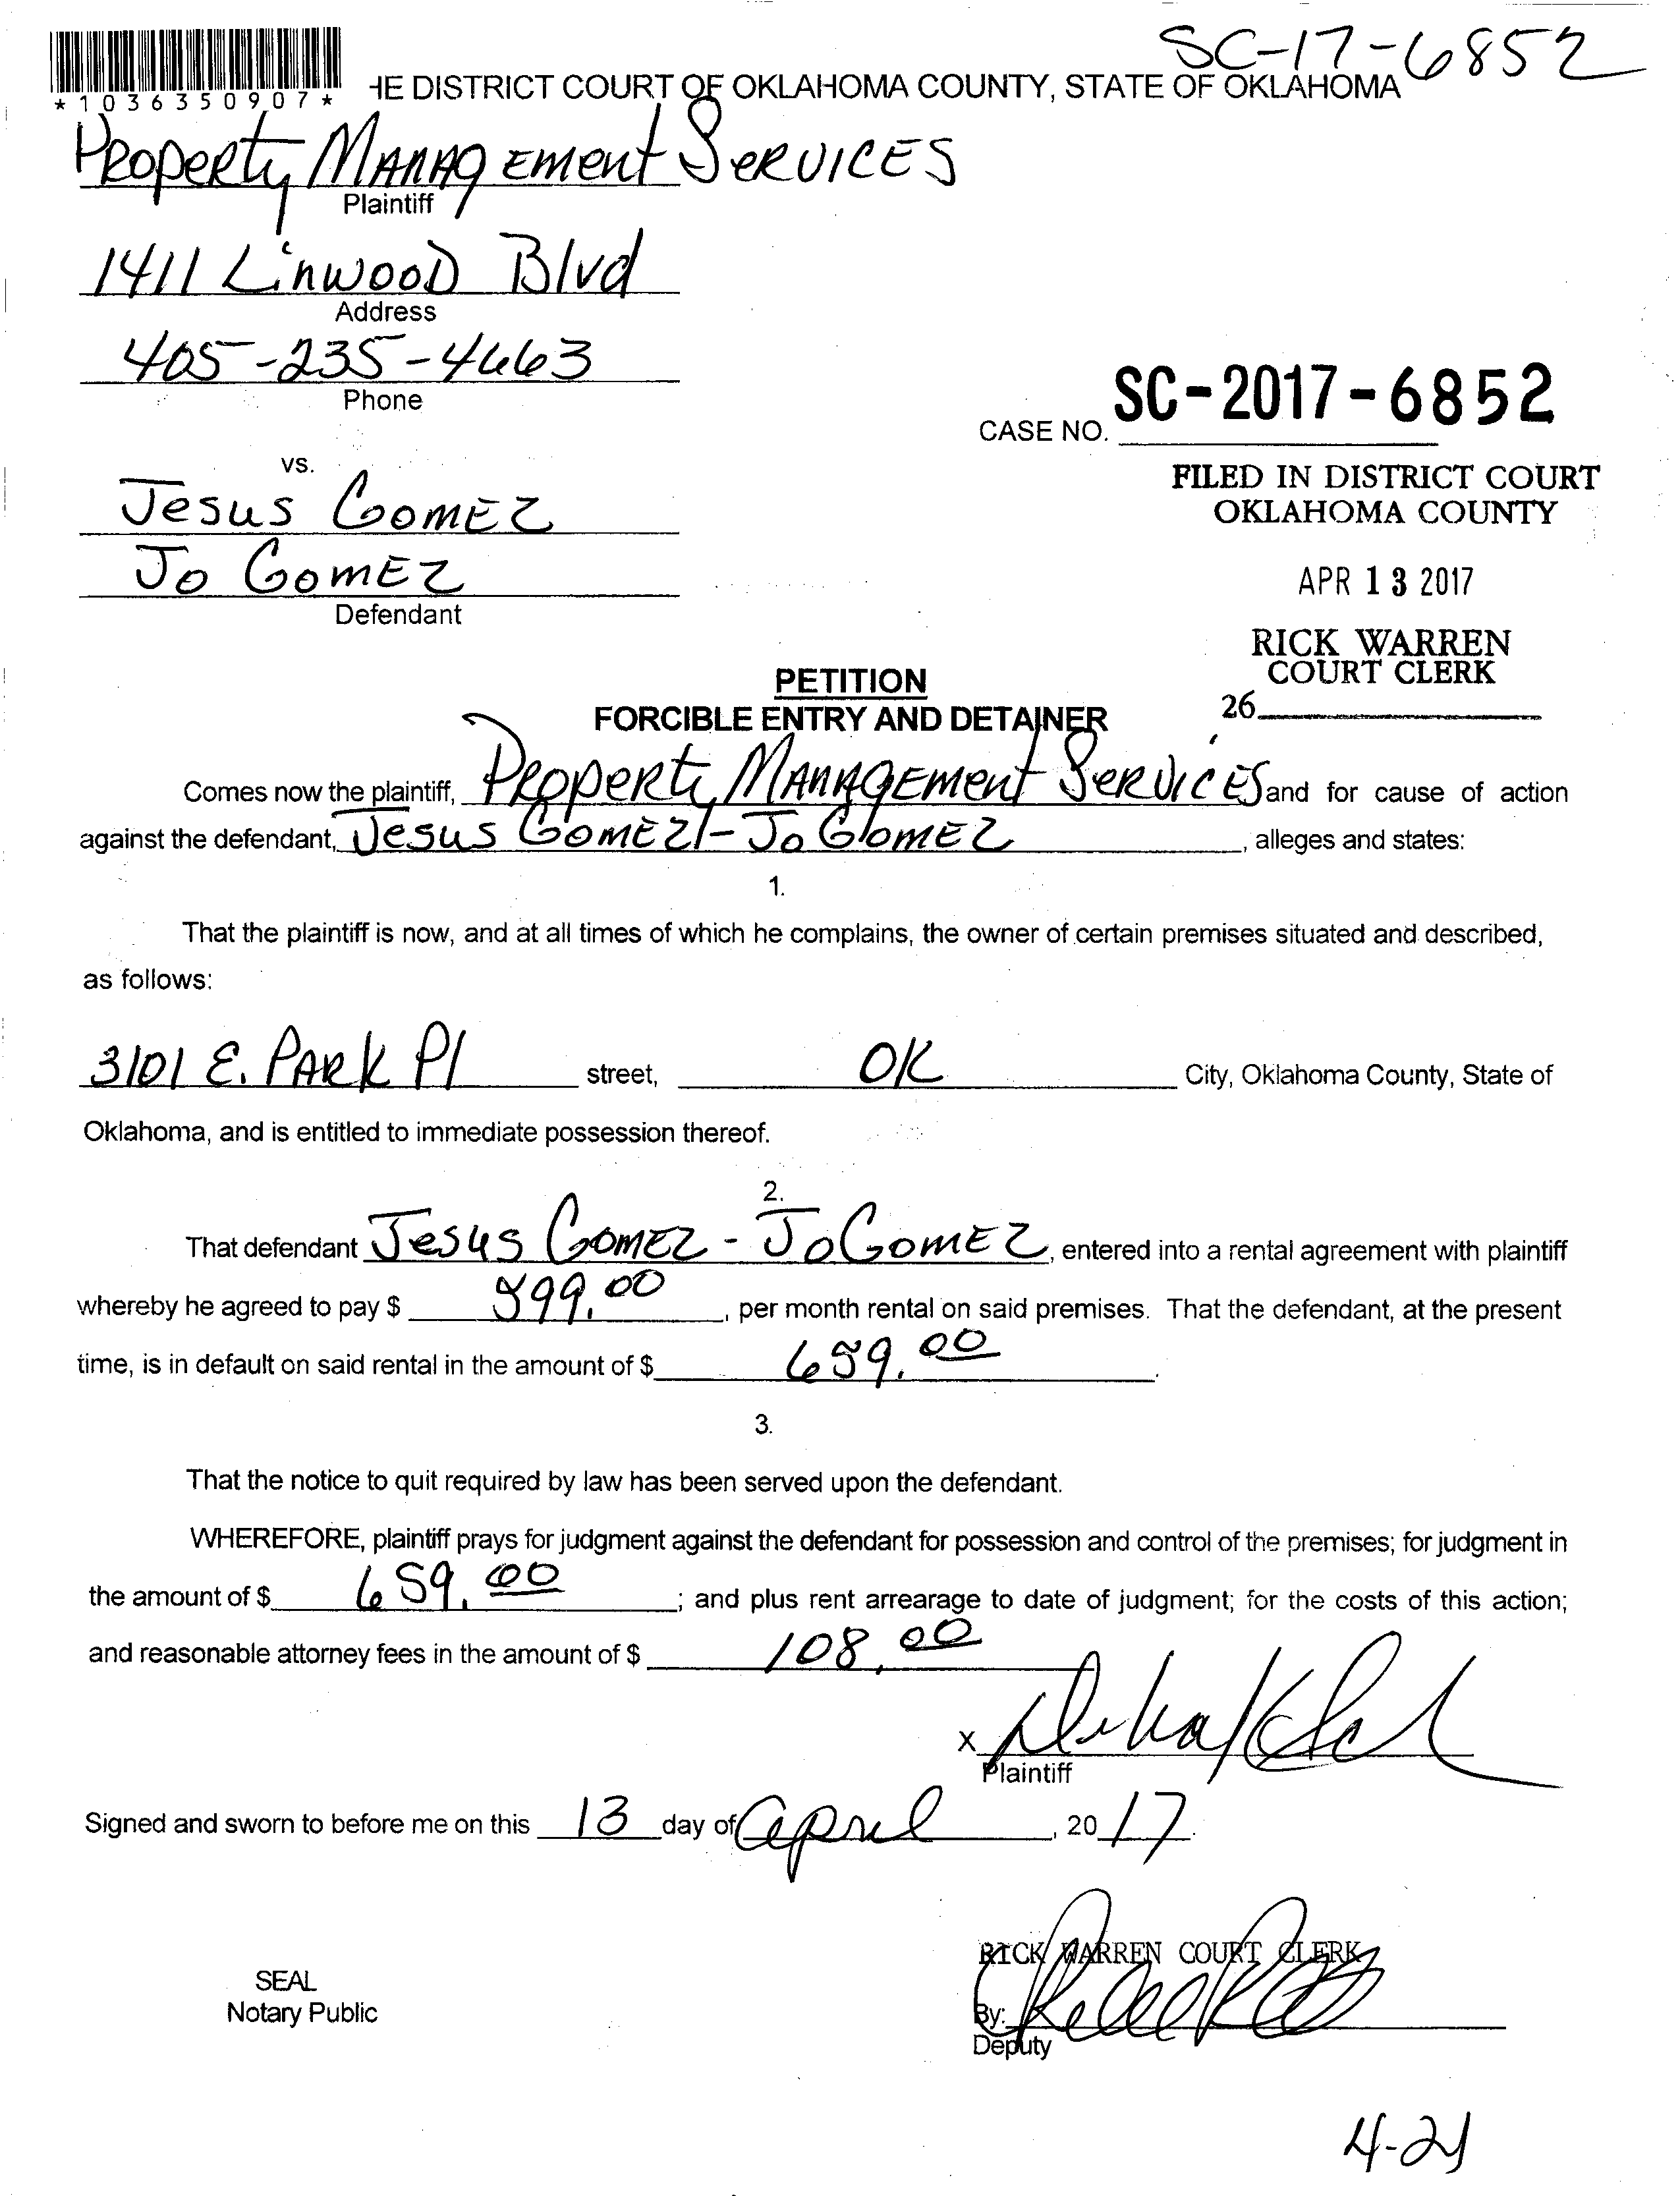 SC-17-6852
*1036350907*
HE DISTRICT COURT OF OKLAHOMA COUNTY, STATE OF OKLAHOMA
Property Management Services
Plaintiff
1411 Linwood Blvd
Address
405-235-4663
Phone
CASE NO. SC-2017-6852
vs.
FILED IN DISTRICT COURT
OKLAHOMA COUNTY
Jesus Gomez
Jo Gomez
Defendant
APR 13 2017
RICK WARREN
COURT CLERK
26
PETITION
FORCIBLE ENTRY AND DETAINER
Comes now the plaintiff, Property Management Services and for cause of action
against the defendant, Jesus Gomez - Jo Gomez, alleges and states:
1.
That the plaintiff is now, and at all times of which he complains, the owner of certain premises situated and described,
as follows:
3101 E. Park Pl street, OK City, Oklahoma County, State of
Oklahoma, and is entitled to immediate possession thereof.
2.
That defendant Jesus Gomez - Jo Gomez, entered into a rental agreement with plaintiff
whereby he agreed to pay $ 599.00, per month rental on said premises. That the defendant, at the present
time, is in default on said rental in the amount of $ 659.00.
3.
That the notice to quit required by law has been served upon the defendant.
WHEREFORE, plaintiff prays for judgment against the defendant for possession and control of the premises; for judgment in
the amount of $ 659.00; and plus rent arrearage to date of judgment; for the costs of this action;
and reasonable attorney fees in the amount of $ 108.00
X
Plaintiff
Signed and sworn to before me on this 13 day of April, 2017.
RICK WARREN COURT CLERK
SEAL
Notary Public
By:
Deputy
4-21